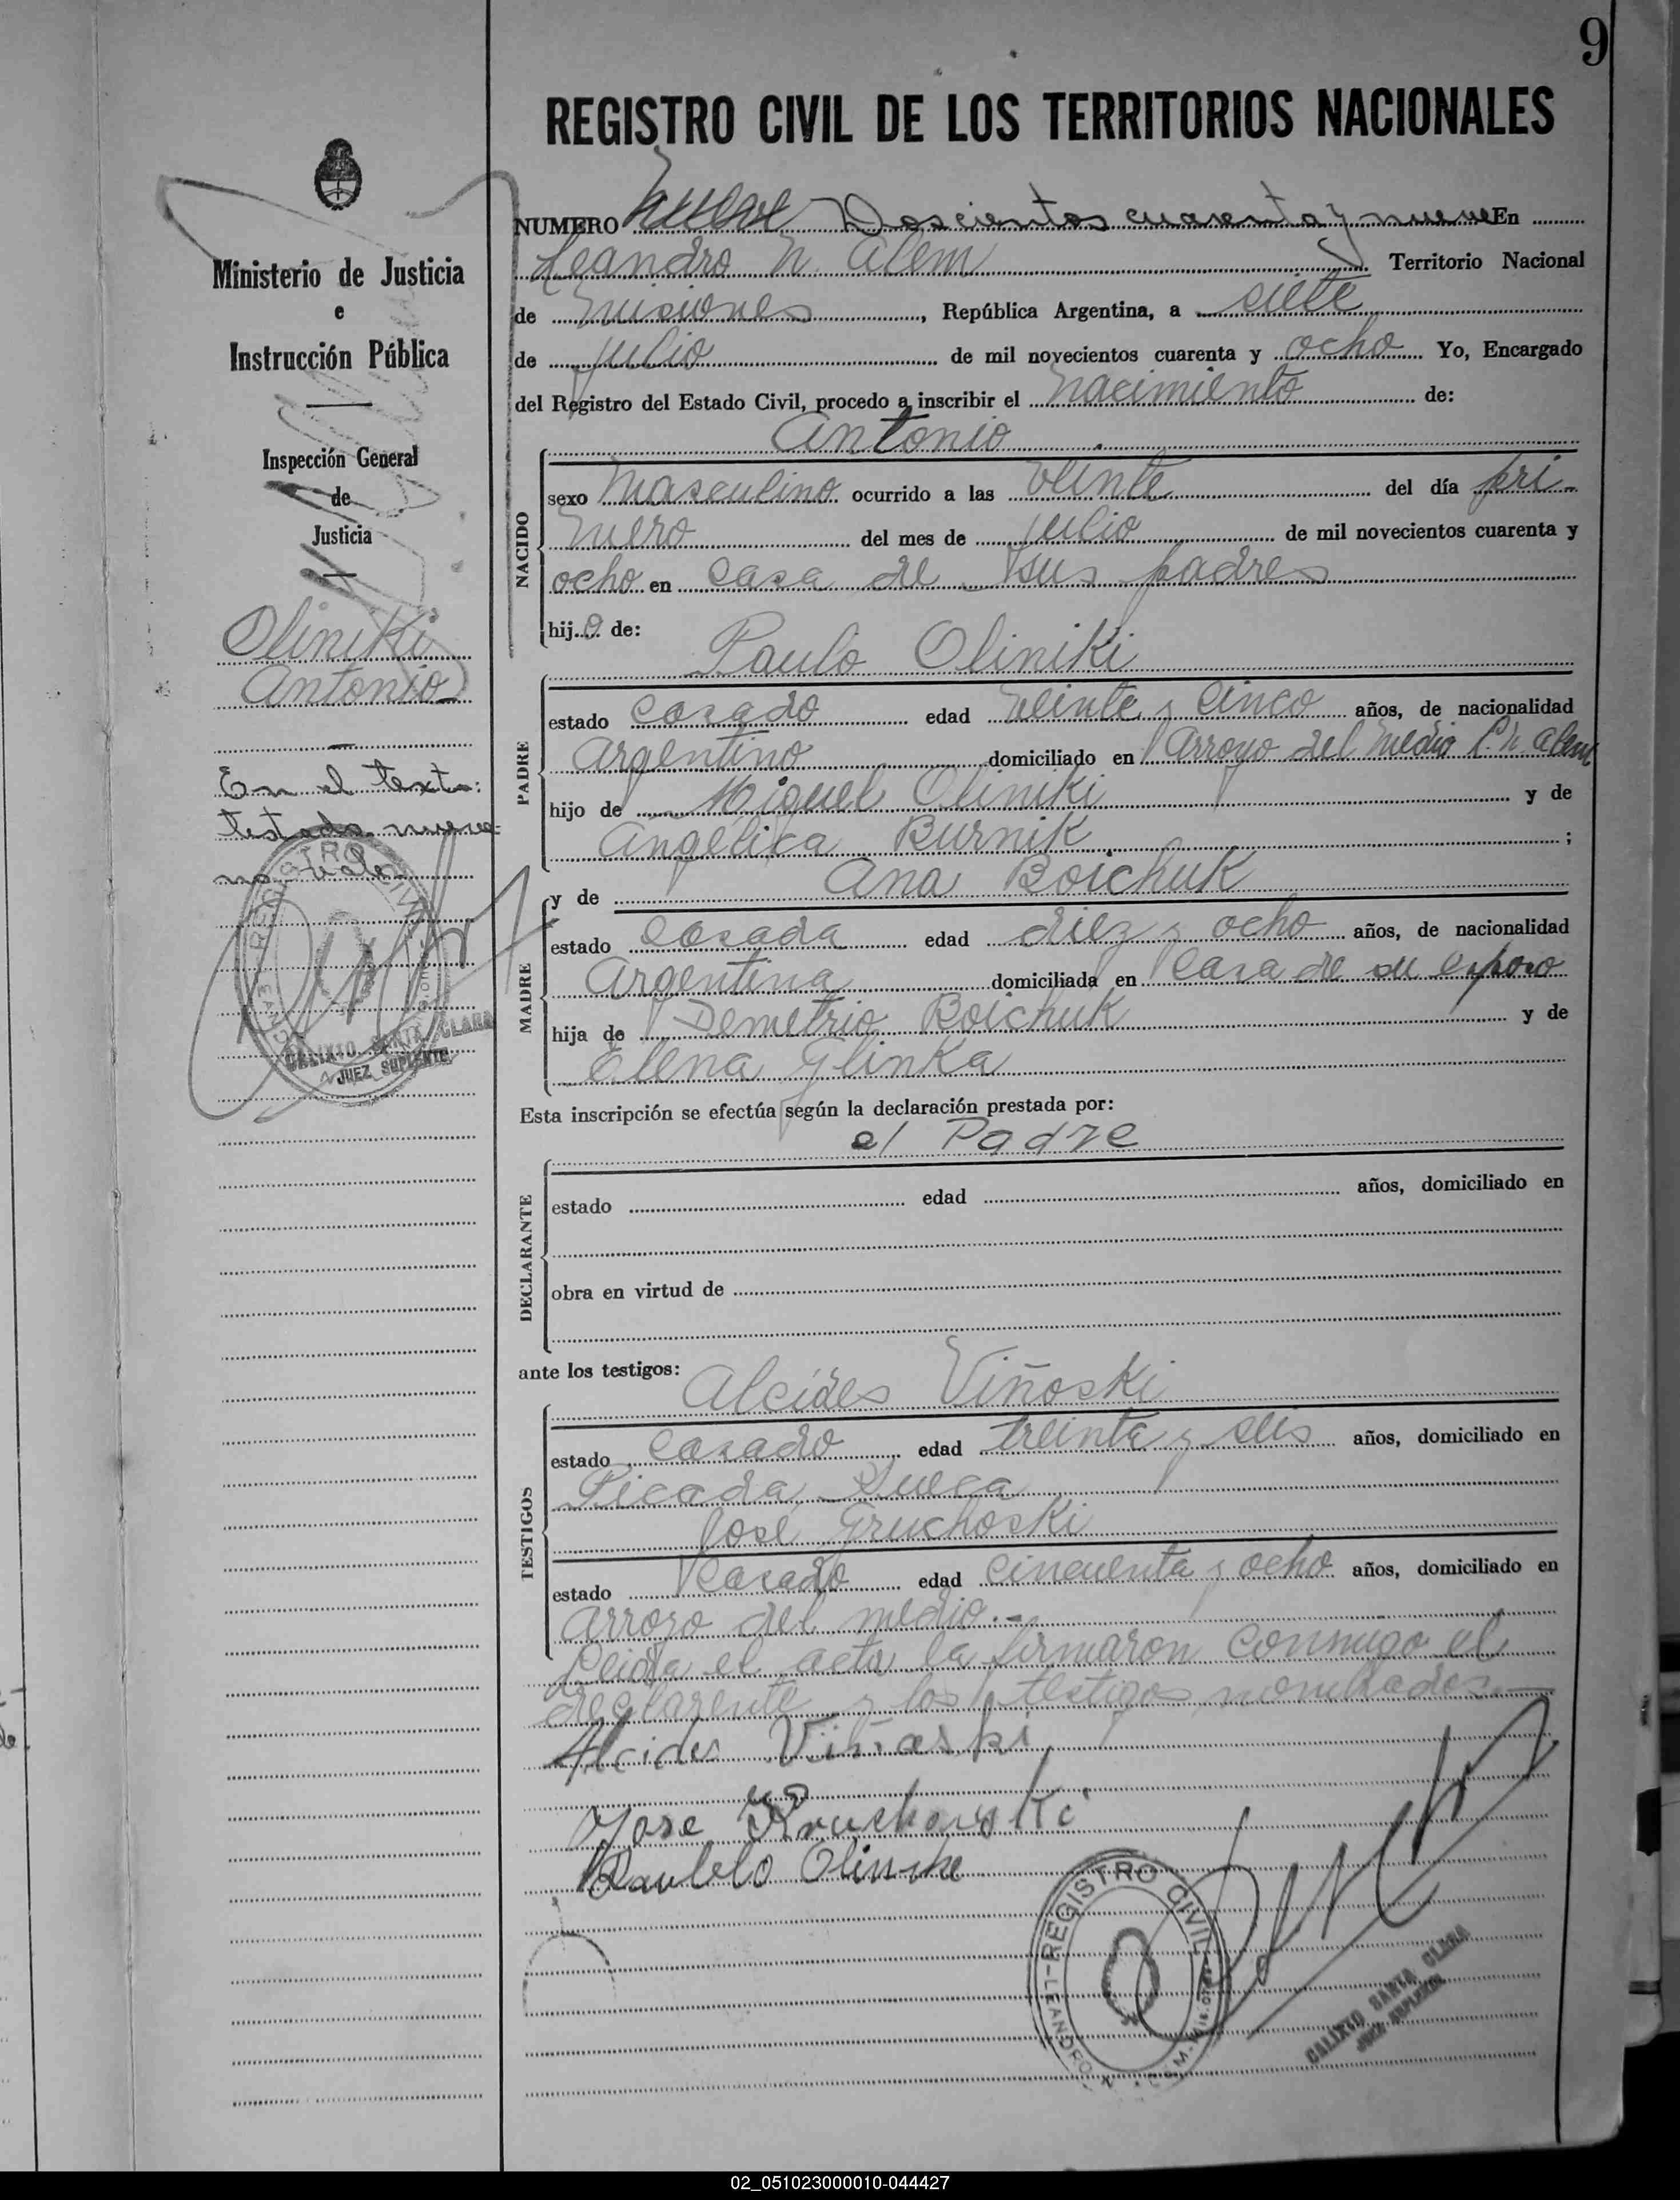 9
REGISTRO CIVIL DE LOS TERRITORIOS NACIONALES
Ministerio de Justicia
e
Instrucción Pública
Inspección General
de
Justicia
Oliniki
Antonio
En el texto:
testado nueve
no vale
REGISTRO CIVIL
CALIXTO SANTA CLARA
JUEZ SUPLENTE
NUMERO nueve Doscientos cuarenta y nueve En
Leandro N. Alem Territorio Nacional
de Misiones, República Argentina, a siete
de julio de mil novecientos cuarenta y ocho Yo, Encargado
del Registro del Estado Civil, procedo a inscribir el nacimiento de:
Antonio
NACIDO
sexo Masculino ocurrido a las veinte del día pri-
mero del mes de julio de mil novecientos cuarenta y
ocho en casa de sus padres
hijo de:
Paulo Oliniki
PADRE
estado Casado edad veinte y cinco años, de nacionalidad
Argentino domiciliado en Arroyo del Medio L. N. Alem
hijo de Miguel Oliniki y de
Angélica Burnik ;
y de Ana Boichuk
MADRE
estado Casada edad diez y ocho años, de nacionalidad
Argentina domiciliada en Casa de su esposo
hija de Demetrio Boichuk y de
Elena Glinka
Esta inscripción se efectúa según la declaración prestada por:
el Padre
DECLARANTE
estado edad años, domiciliado en
obra en virtud de
ante los testigos:
Alcídes Viñoski
TESTIGOS
estado Casado edad treinta y seis años, domiciliado en
Picada Sueca
José Gruchoski
estado Casado edad cincuenta y ocho años, domiciliado en
Arroyo del medio.-
Leida el acta la firmaron conmigo el
declarente y los testigos nombrados.-
Alcides Viñaski
Jose
Oliniki
REGISTRO CIVIL
LEANDRO N.
CALIXTO SANTA CLARA
JUEZ SUPLENTE
02_051023000010-044427